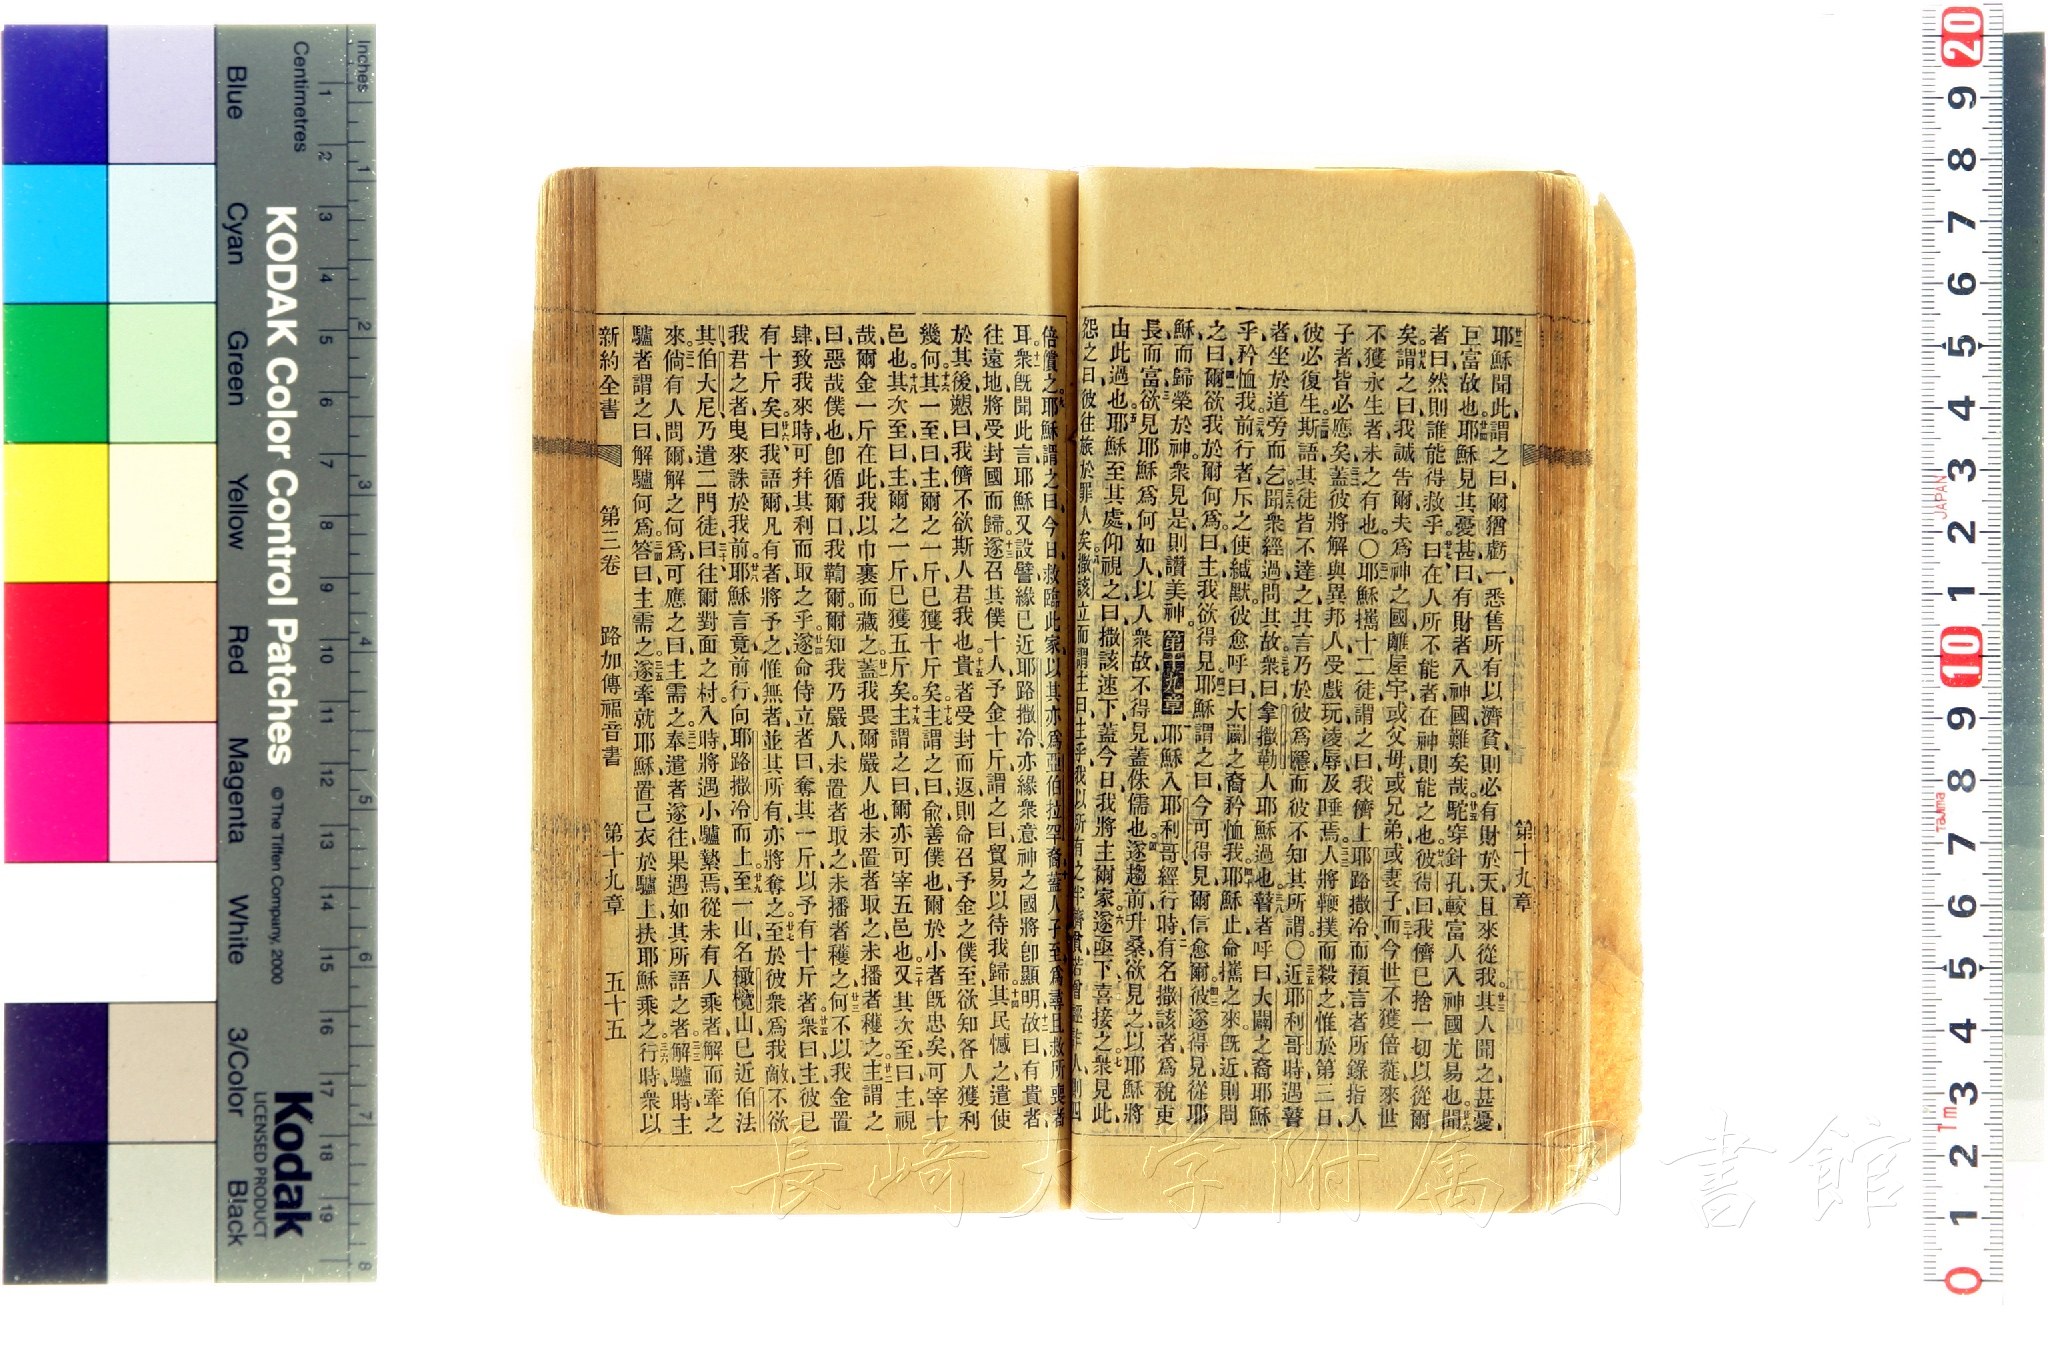 耶穌聞此、謂之曰、爾猶虧一、悉售所有以濟貧、則必有財於天、且來從我、其人聞之甚憂、
巨富故也、耶穌見其憂甚、曰、有財者入神國、難矣哉、駝穿針孔、較富人入神國尤易也、聞
者曰、然則誰能得救乎、曰、在人所不能者、在神則能之也、彼得曰、我儕已捨一切以從爾
矣、謂之曰、我誠告爾、夫爲神之國、離屋宇、或父母、或兄弟、或妻子、而今世不獲倍蓰、來世
不獲永生者、未之有也。〇耶穌攜十二徒、謂之曰、我儕上耶路撒冷、而預言者所錄指人
子者、皆必應矣、蓋彼將解與異邦人、受戲玩凌辱、及唾焉、人將鞭撲而殺之、惟於第三日
彼必復生、斯語其徒皆不達之、其言乃於彼爲隱、而彼不知其所謂。〇近耶利哥時、遇瞽
者坐於道旁而乞、聞衆經過、問其故、衆曰、拿撒勒人耶穌過也、瞽者呼曰、大闢之裔耶穌
乎、矜恤我、前行者斥之使緘默、彼愈呼曰、大闢之裔、矜恤我、耶穌止、命攜之來、旣近、則問
之曰、爾欲我於爾何爲、曰、主、我欲得見、耶穌謂之曰、今可得見、爾信愈爾、彼遂得見、從耶
穌而歸榮於神、衆見是、則讚美神。第十九章 耶穌入耶利哥經行、時有名撒該者、爲稅吏
長而富、欲見耶穌爲何如人、以人衆故、不得見、蓋侏儒也、遂趨前升桑、欲見之、以耶穌將
由此過也、耶穌至其處、仰視之曰、撒該、速下、蓋今日我將主爾家、遂亟下、喜接之、衆見此、
怨之曰、彼往旅於罪人矣、撒該立而謂主曰、主乎、我以所有之半濟貧、若曾誣詐人、則四
第十九章
倍償之、耶穌謂之曰、今日救臨此家、以其亦爲亞伯拉罕裔、蓋人子至、爲尋且救所喪者
耳、衆旣聞此言、耶穌又設譬、緣已近耶路撒冷、亦緣衆意神之國將卽顯明、故曰、有貴者
往遠地、將受封國而歸、遂召其僕十人、予金十斤、謂之曰、貿易以待我歸、其民憾之、遣使
於其後、愬曰、我儕不欲斯人君我也、貴者受封而返、則命召予金之僕至、欲知各人獲利
幾何、其一至曰、主、爾之一斤、已獲十斤矣、主謂之曰、俞、善僕也、爾於小者旣忠矣、可宰十
邑也、其次至曰、主、爾之一斤、已獲五斤矣、主謂之曰、爾亦可宰五邑也、又其次至曰、主、視
哉、爾金一斤在此、我以巾裹而藏之、蓋我畏爾嚴人也、未置者取之、未播者穫之、主謂之
曰、惡哉僕也、卽循爾口我鞫爾、爾知我乃嚴人、未置者取之、未播者穫之、何不以我金置
肆、致我來時、可幷其利而取之乎、遂命侍立者曰、奪其一斤、以予有十斤者、衆曰、主、彼已
有十斤矣、曰、我語爾、凡有者將予之、惟無者、並其所有亦將奪之、至於彼衆爲我敵、不欲
我君之者、曳來誅於我前、耶穌言竟、前行向耶路撒冷而上、至一山、名橄欖山、已近伯法
其伯大尼、乃遣二門徒、曰、往爾對面之村、入時將遇小驢縶焉、從未有人乘者、解而牽之
來、倘有人問爾解之何爲、可應之曰、主需之、奉遣者遂往、果遇如其所語之者、解驢時、主
驢者謂之曰、解驢何爲、答曰、主需之、遂牽就耶穌、置己衣於驢上、扶耶穌乘之、行時衆以
新約全書 第三卷 路加傳福音書 第十九章 五十五
長崎大学附属図書館
KODAK Color Control Patches © The Tiffen Company, 2000
Kodak
LICENSED PRODUCT
Inches
Centimetres
Blue Cyan Green Yellow Red Magenta White 3/Color Black
JAPAN
Tajima
Tm